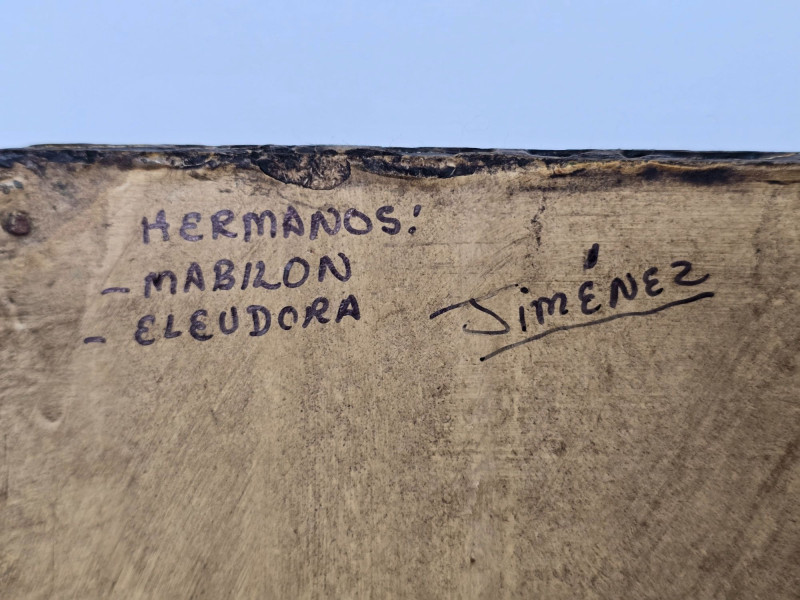 HERMANOS:
- MABILON
- ELEUDORA
JiMÉNEZ